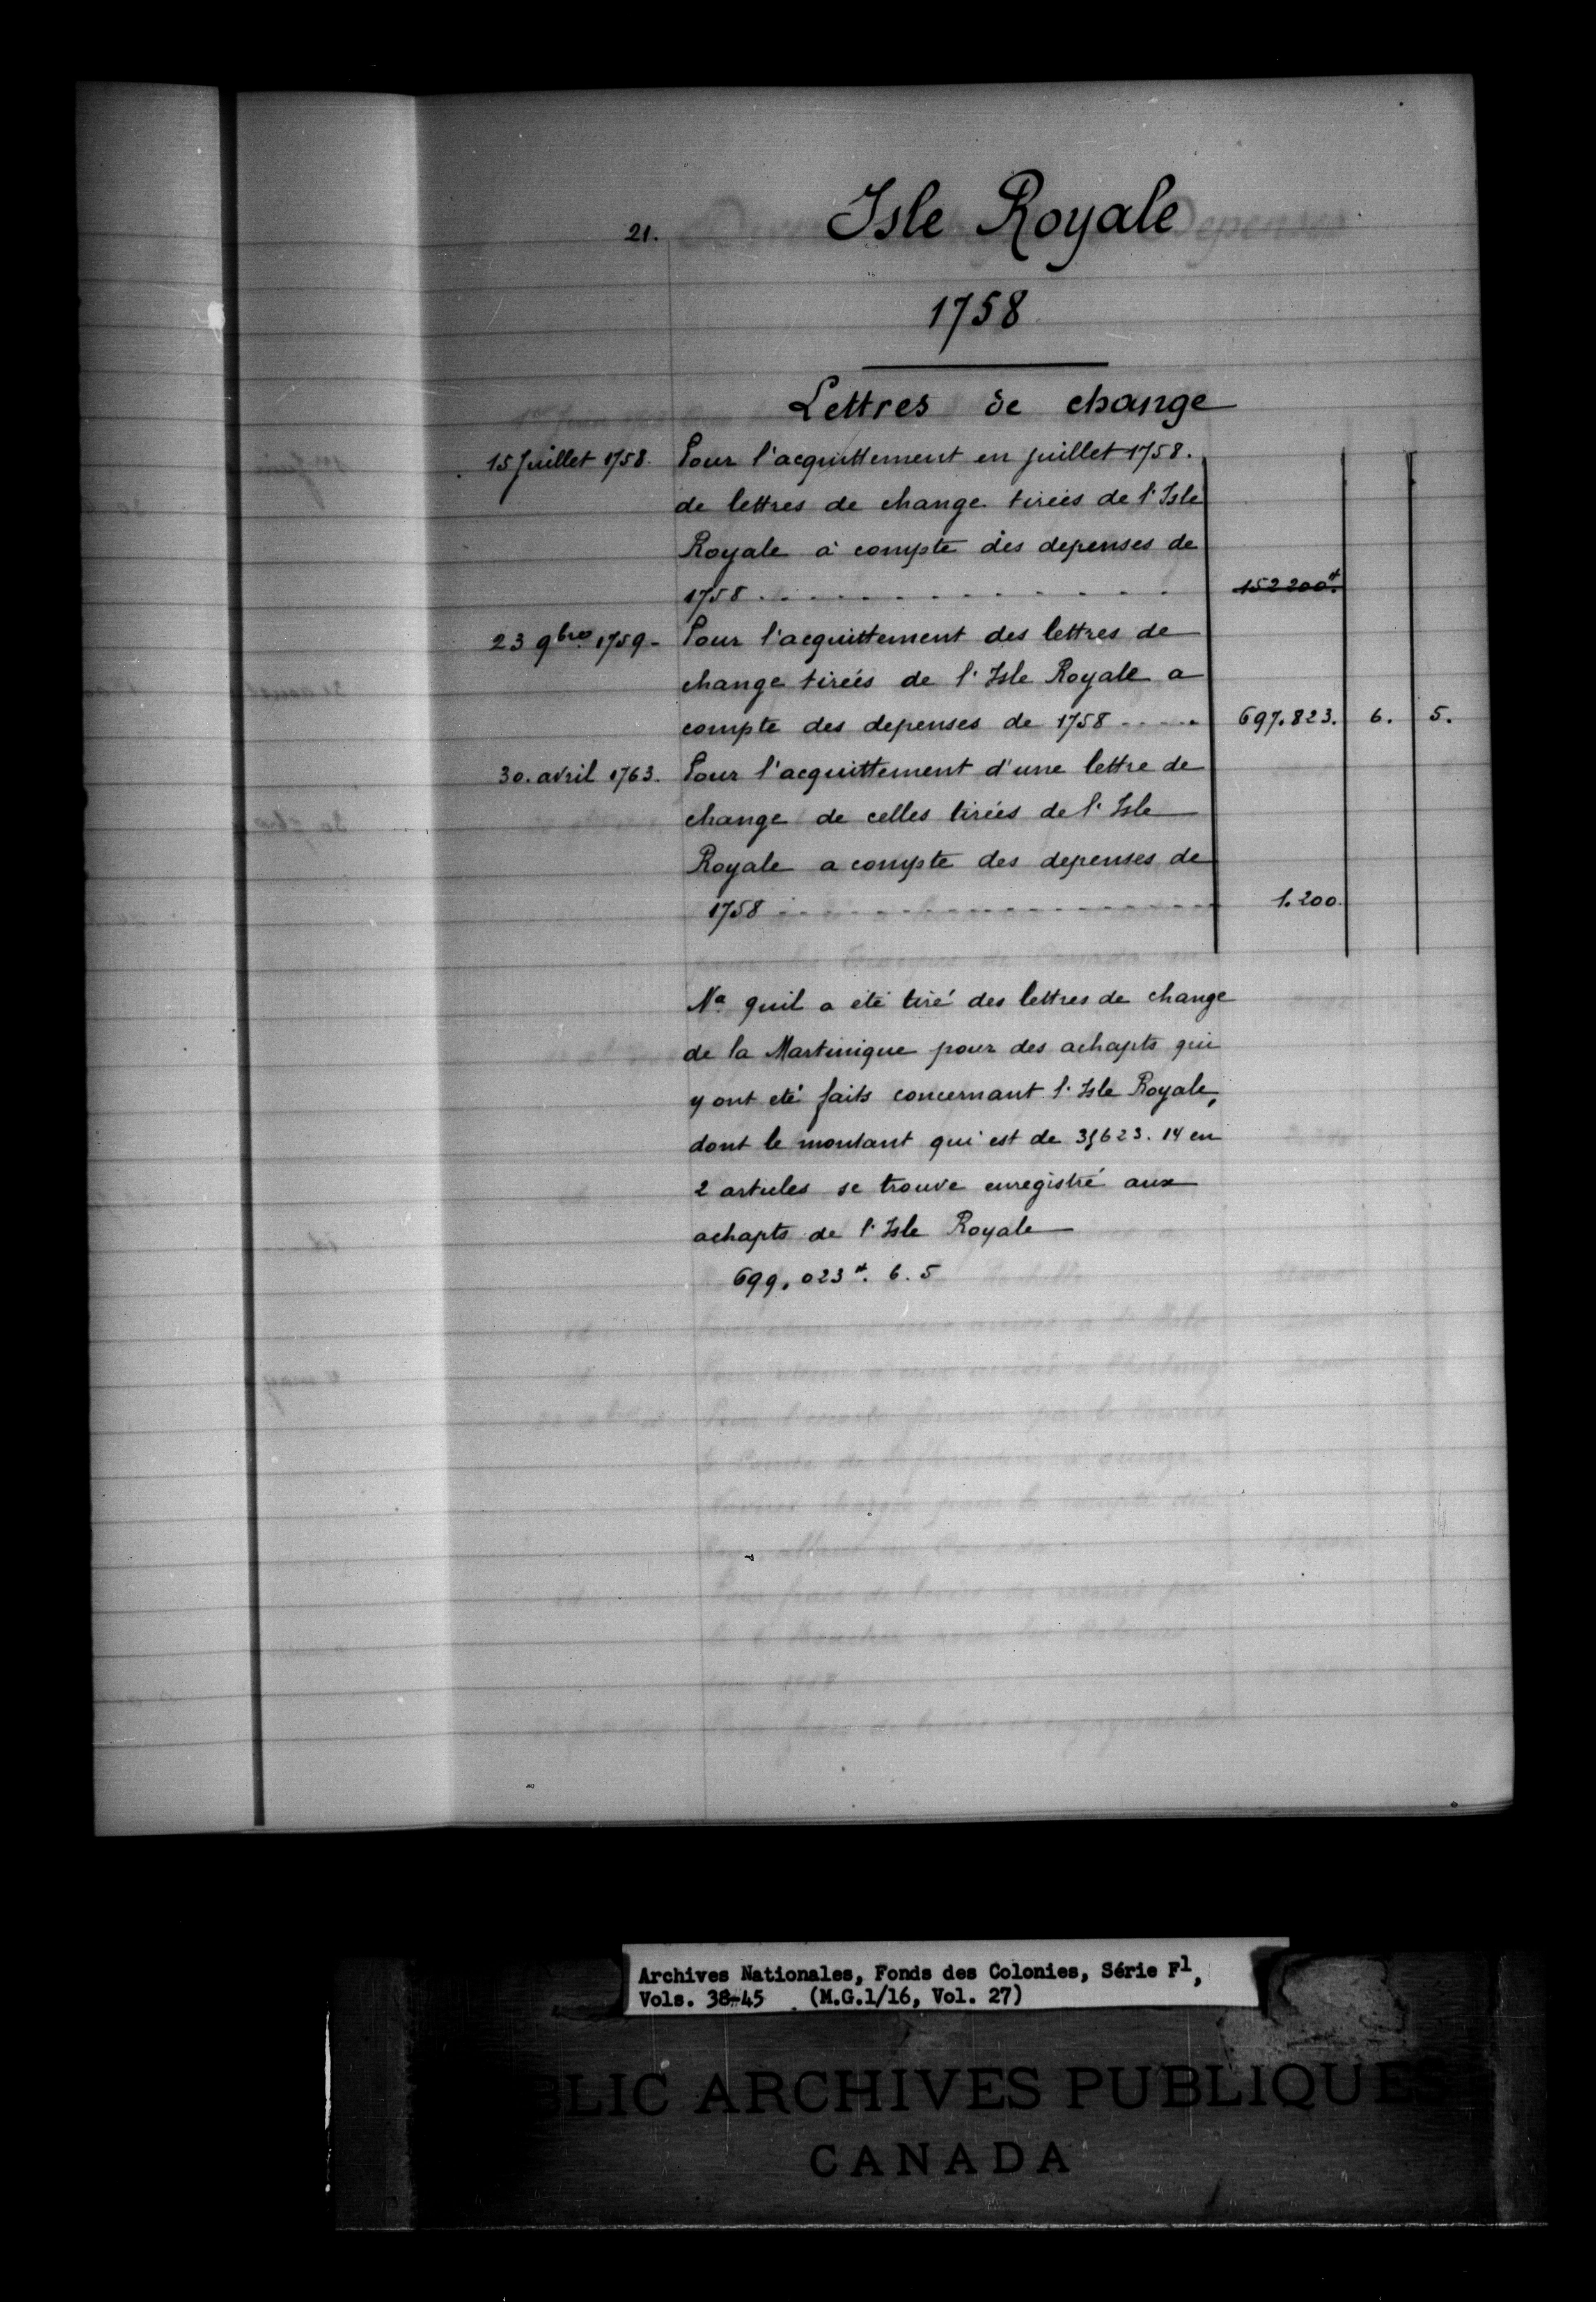 21. Isle Royale
1758
Lettres de change
15 Juillet 1758. Pour l'acquittement en juillet 1758.
de lettres de change tireés de l'Isle
Royale à compte des depenses de
1758 . . . . . . . . . . . . . 152 200#.
23 9bre 1759 - Pour l'acquittement des lettres de
change tireés de l'Isle Royale a
compte des depenses de 1758 - - - - - 697.823. 6. 5.
30. avril 1763. Pour l'acquittement d'une lettre de
change de celles tireés de l'Isle
Royale a compte des depenses de
1758 - - - - - - - - - - - - - - - - - - 1.200.
Na quil a eté tiré des lettres de change
de la Martinique pour des achapts qui
y ont eté faits concernant l'Isle Royale,
dont le montant qui est de 623. 14 en
2 articles se trouve enregistré aux
achapts de l'Isle Royale
699,023#. 6. 5
Archives Nationales, Fonds des Colonies, Série F1,
Vols. 38-45 (M.G.1/16, Vol. 27)
BLIC ARCHIVES PUBLIQUES
CANADA